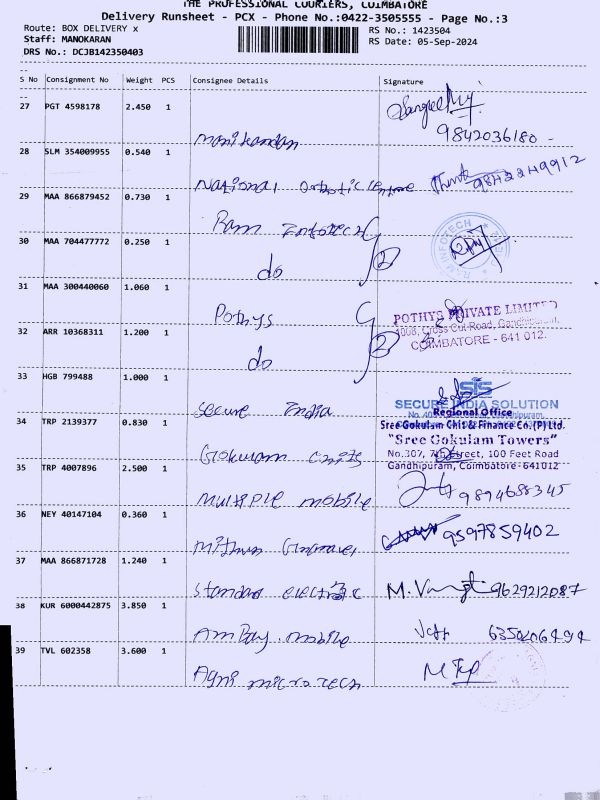 THE PROFESSIONAL COURIERS, COIMBATORE
Delivery Runsheet - PCX - Phone No.:0422-3505555 - Page No.:3
Route: BOX DELIVERY x
RS No.: 1423504
Staff: MANOKARAN
RS Date: 05-Sep-2024
DRS No.: DCJB142350403
S No Consignment No Weight PCS Consignee Details Signature
27 PGT 4598178 2.450 1
9842036180 -
Manikandan
28 SLM 354009955 0.540 1
National orthotic Centre
29 MAA 866879452 0.730 1
Ram Infotech
30 MAA 704477772 0.250 1
2
RAM INFOTECH
do
31 MAA 300440060 1.060 1
Pothys
POTHYS PRIVATE LIMITED
1008, Cross Cut Road, Gandhipuram,
COIMBATORE - 641 012.
32 ARR 10368311 1.200 1
2
do
33 HGB 799488 1.000 1
SIS
Secure India
SECURE INDIA SOLUTION
Regional Office
34 TRP 2139377 0.830 1
Sree Gokulam Chit & Finance Co.(P) Ltd.
"Sree Gokulam Towers"
Gokulam chits
No.307, 7th Street, 100 Feet Road
Gandhipuram, Coimbatore-641012
35 TRP 4007896 2.500 1
multiple mobile
9894688345
36 NEY 40147104 0.360 1
9597859402
Mithun
37 MAA 866871728 1.240 1
Standard electric
M. 9629212087
38 KUR 6000442875 3.850 1
mobile
39 TVL 602358 3.600 1
Agni microtech